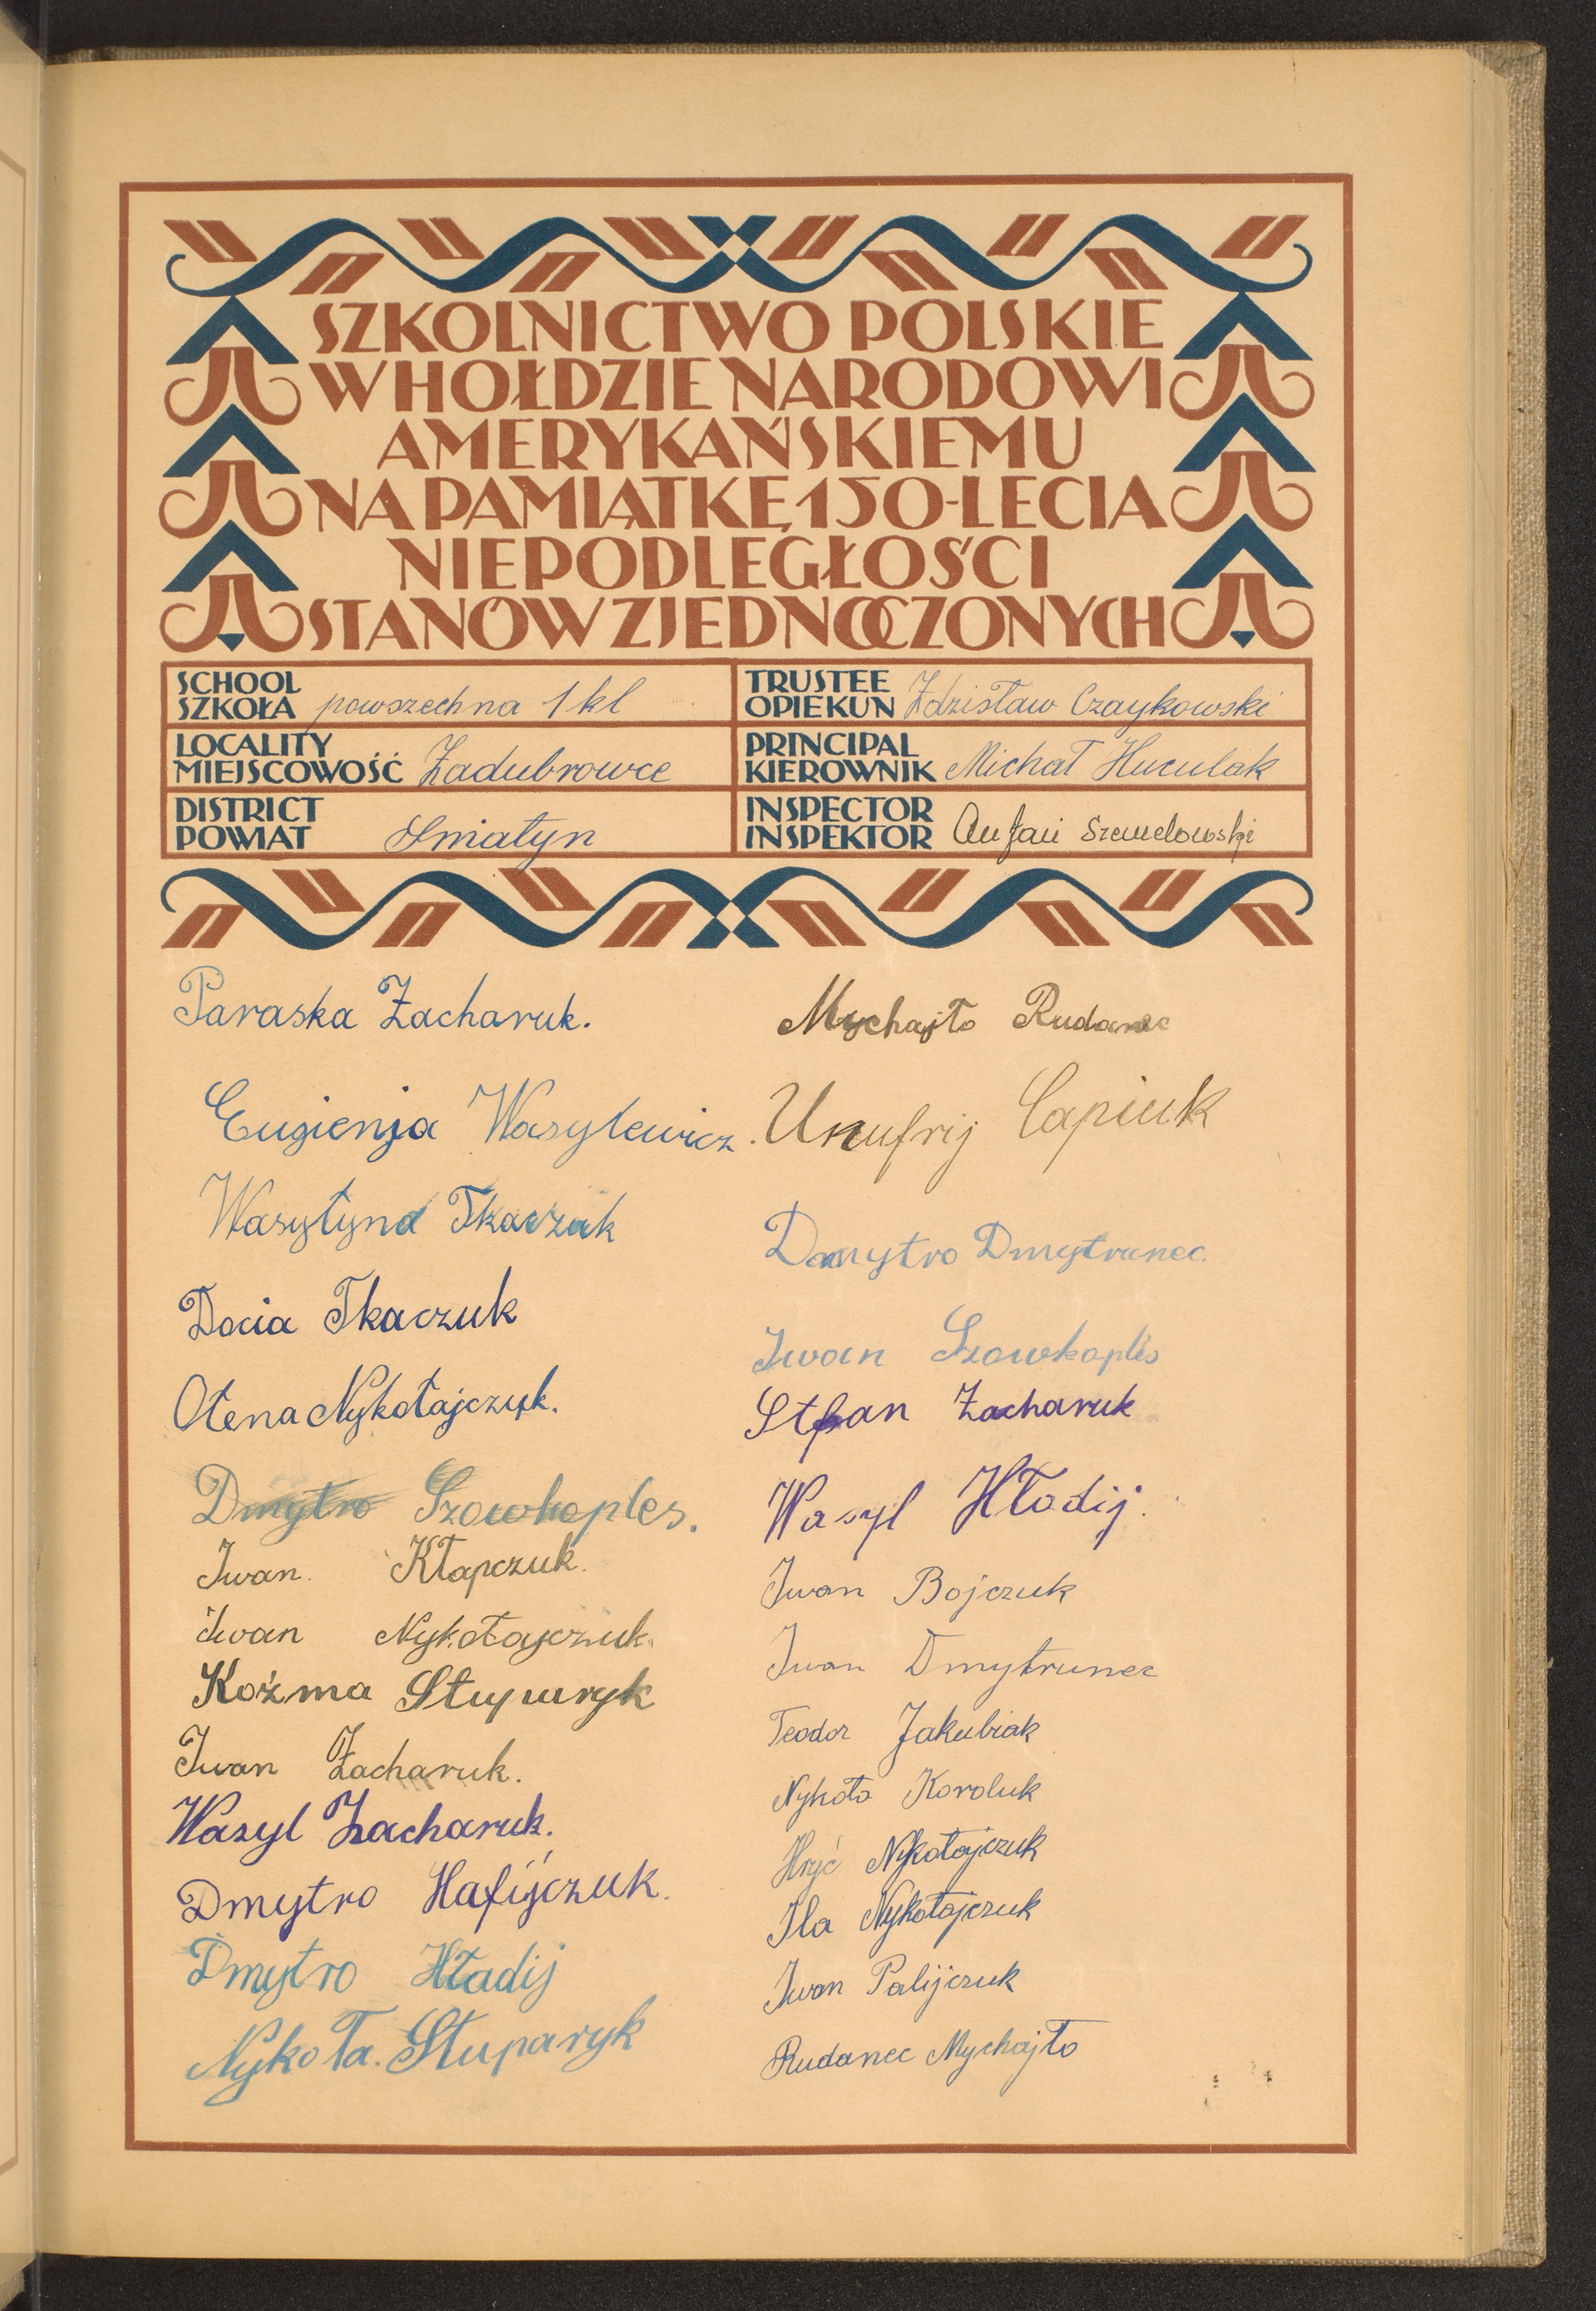 SZKOLNICTWO POLSKIE
W HOŁDZIE NARODOWI
AMERYKAŃSKIEMU
NA PAMIĄTKĘ 150-LECIA
NIEPODLEGŁOŚCI
STANÓW ZJEDNOCZONYCH
SCHOOL
SZKOŁA powszechna 1 kl
LOCALITY
MIEJSCOWOŚĆ Zadubrowce
DISTRICT
POWIAT Śniatyn
TRUSTEE
OPIEKUN Zdzisław Czaykowski
PRINCIPAL
KIEROWNIK Michał Huculak
INSPECTOR
INSPEKTOR Szemelowski
Paraska Zacharuk.
Eugienja Wasylewicz.
Wasyłyna Tkaczuk
Docia Tkaczuk
Ołena Nykołajczuk.
Dmytro Szowkoples.
Iwan. Kłapczuk.
Iwan Nykołajczuk.
Koźma Stuparyk
Iwan Zacharuk.
Wasyl Zacharuk.
Dmytro Hafijczuk.
Dmytro Hładij
Nykoła. Stuparyk
Mychajło Rudanec
Unufrij Capiuk
Dmytro Dmytrunec.
Iwan Szowkoples
Stefan Zacharuk
Wasyl Hłodij.
Iwan Bojczuk
Iwan Dmytrunec
Teodor Jakubiak
Nykoła Koroluk
Hryć Nykołajczuk
Ila Nykołajczuk
Iwan Palijczuk
Rudanec Mychajło